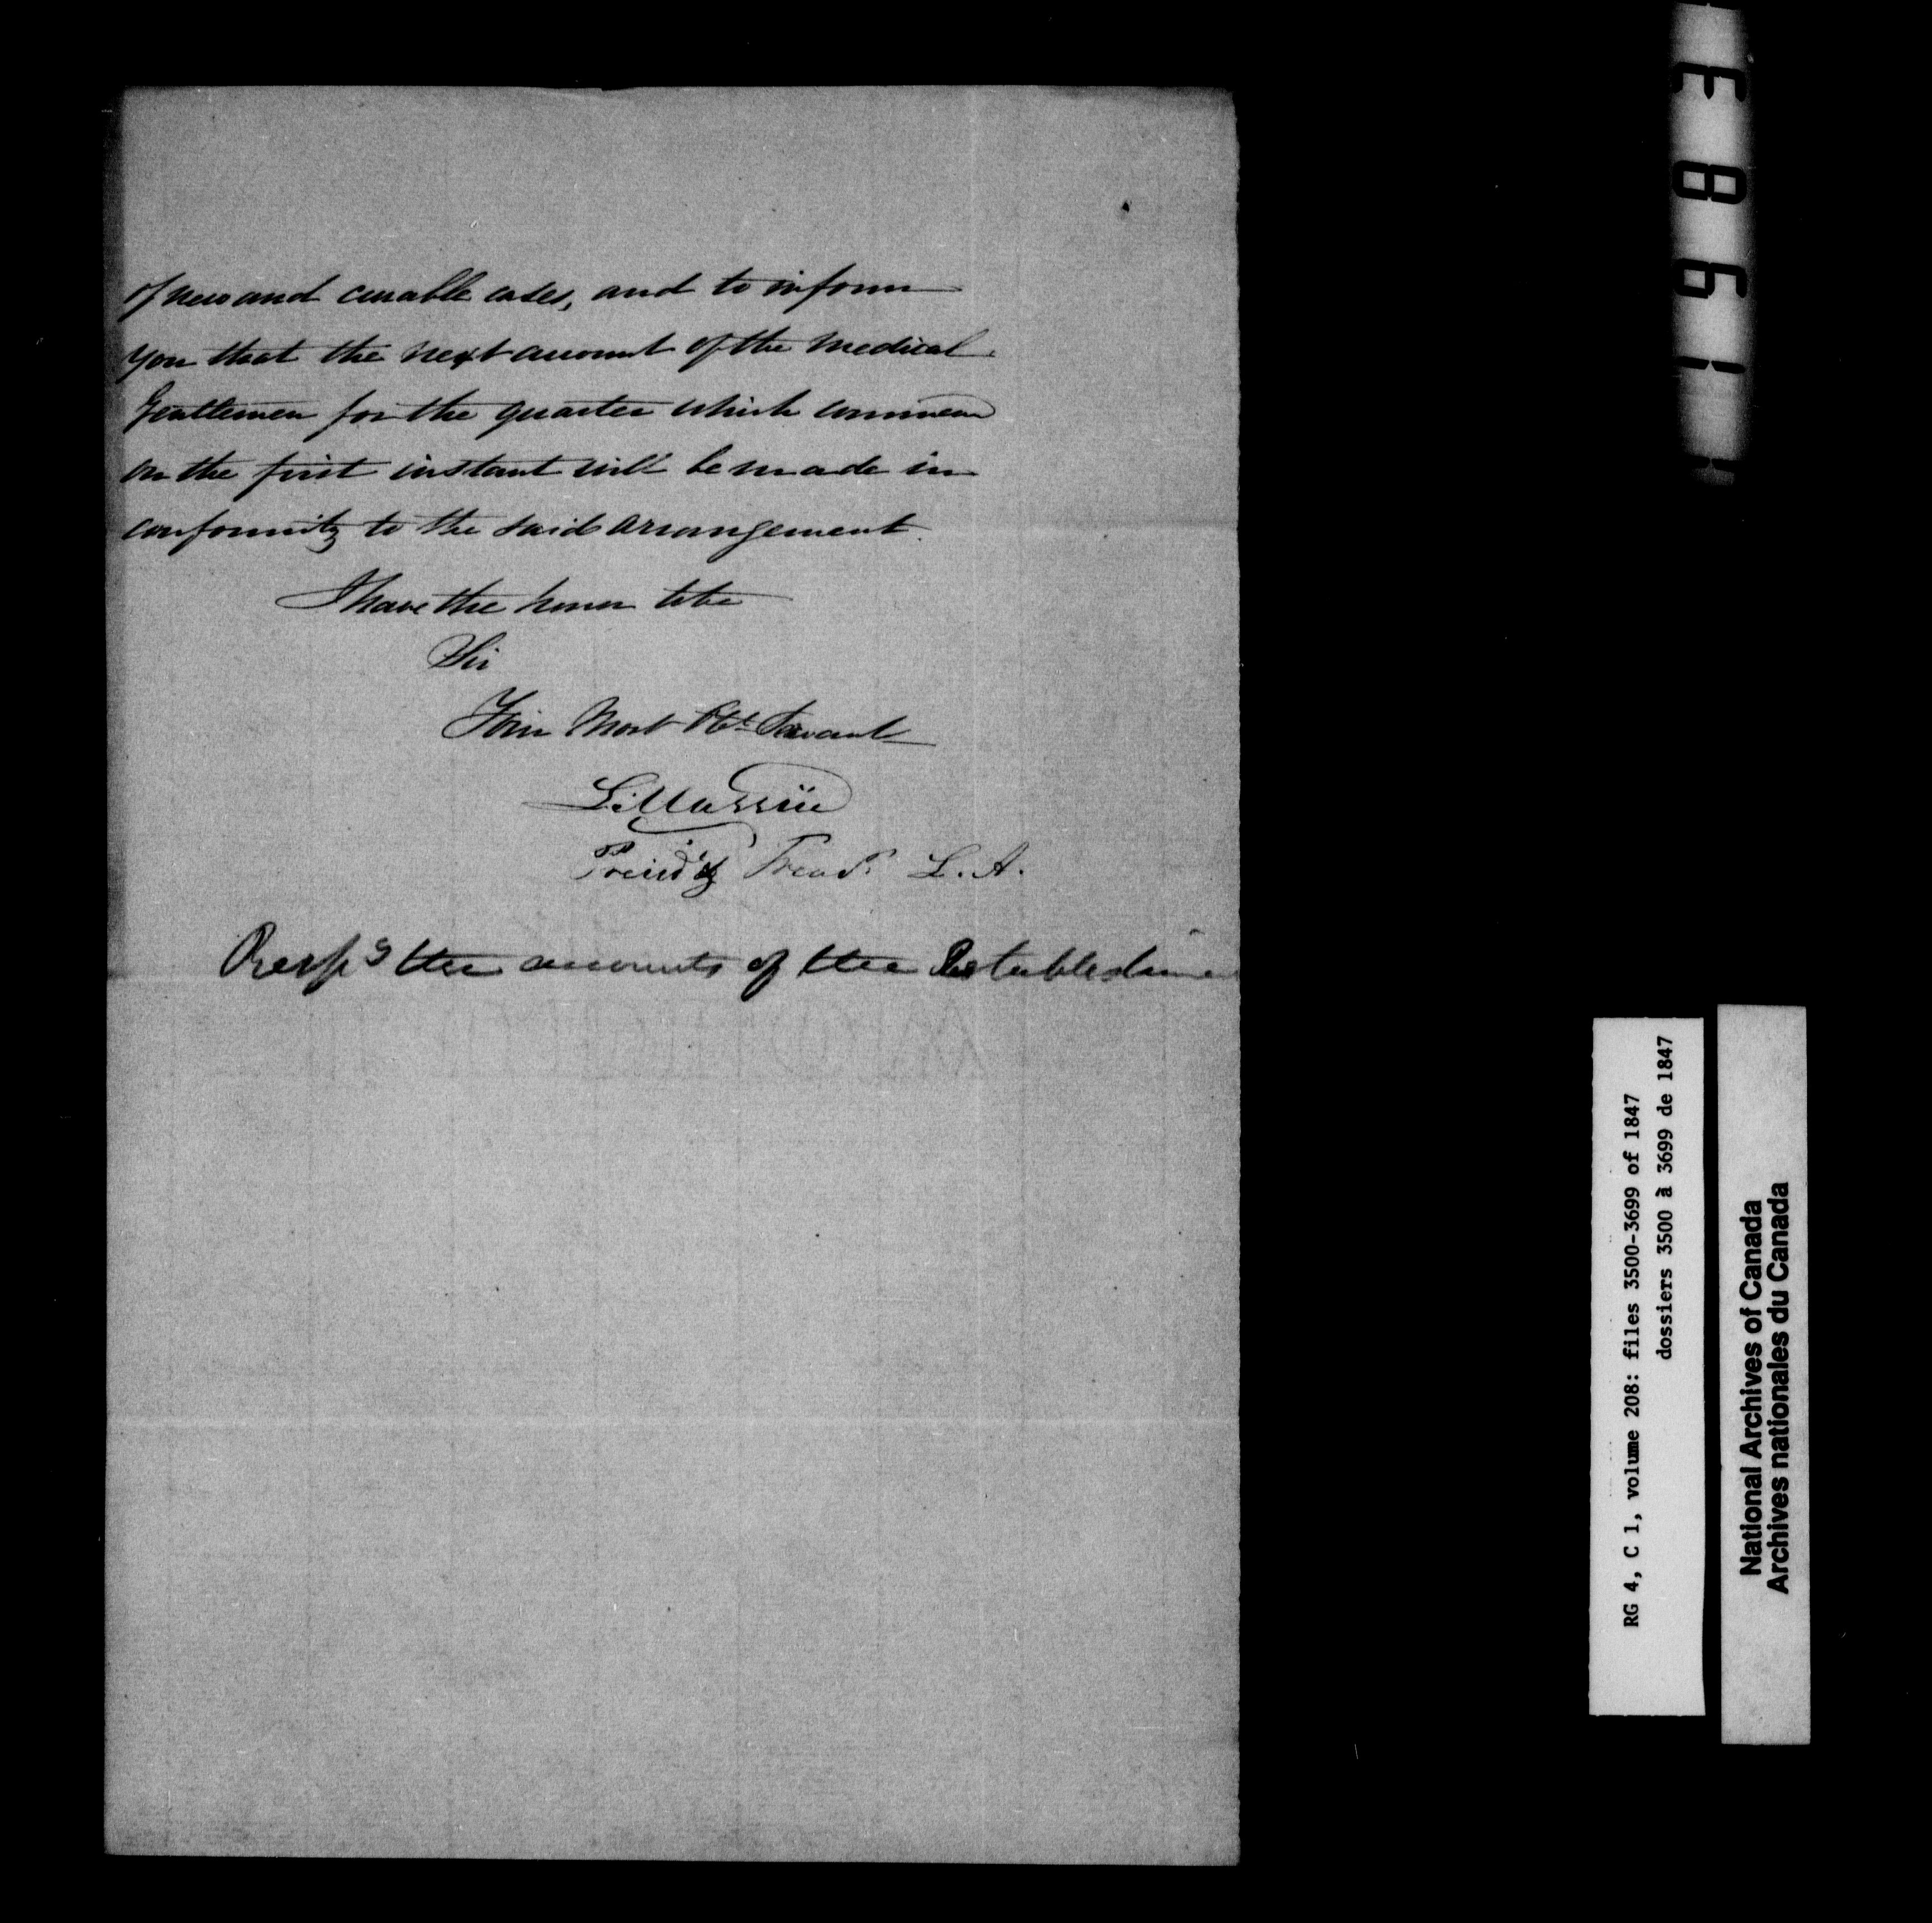 of new and curable cases, and to inform
you that the next account of the medical
Gentlemen for the quarter which commence
on the first instant will be made in
conformity to the said arrangement.
I have the honor to be
Sir
Your Most Obt. Servant
L. Massüe
Presid'g Treas. L. A.
Resp g the accounts of the Establishme
1983
RG 4, C 1, volume 208: files 3500-3699 of 1847
dossiers 3500 à 3699 de 1847
National Archives of Canada
Archives nationales du Canada